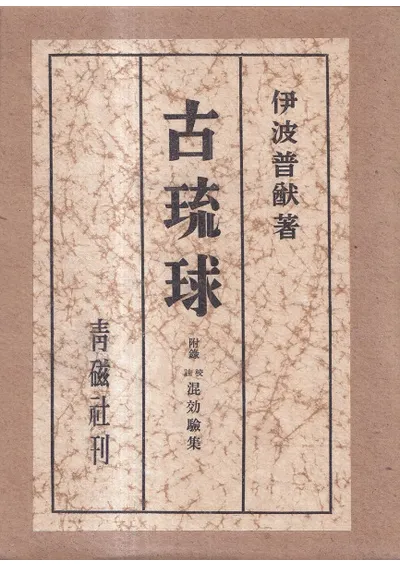 伊波普猷著
古琉球
附錄
校註
混効驗集
青磁社刊